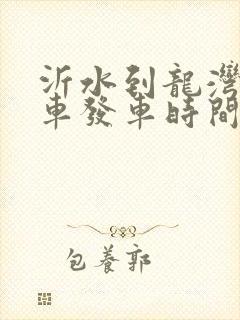 沂水到龍灣
車發車時間
包養郭